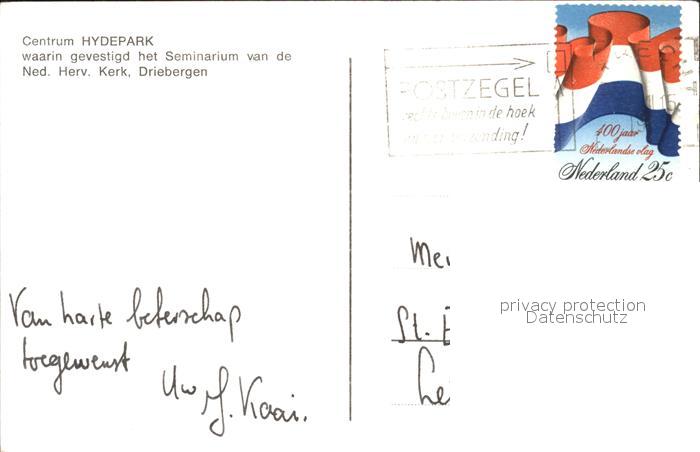 Centrum HYDEPARK
waarin gevestigd het Seminarium van de
Ned. Herv. Kerk, Driebergen
POSTZEGEL
rechts boven in de hoek
zending!
400 jaar
Nederlandse vlag
Nederland 25c
Van harte beterschap
toegewenst
Uw J. Kaai.
St.
privacy protection
Datenschutz